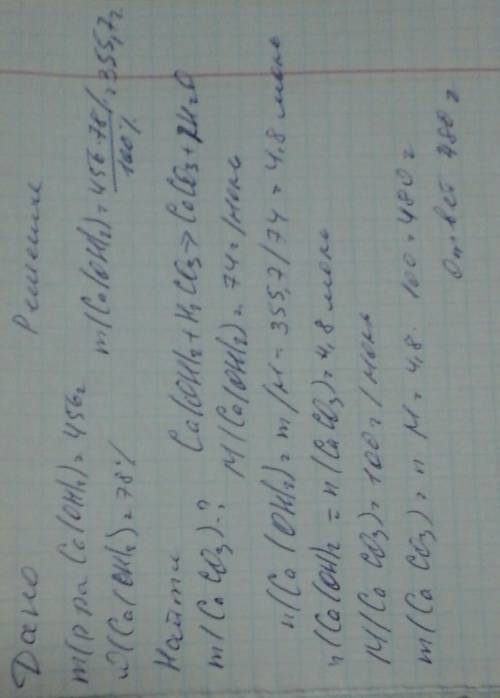 Дано Решение
m(р ра Ca(OH)₂) = 456г m(Ca(OH)₂) = 456·78%/100% = 355,7г
ω(Ca(OH)₂) = 78%
Найти Ca(OH)₂ + H₂CO₃ → CaCO₃ + 2H₂O
m(CaCO₃) - ? M(Ca(OH)₂) = 74г/моль
n(Ca(OH)₂) = m/M = 355,7/74 = 4,8 моль
n(Ca(OH)₂ = n(CaCO₃) = 4,8 моль
M(CaCO₃) = 100г/моль
m(CaCO₃) = n M = 4,8 · 100 = 480г
Ответ 480г